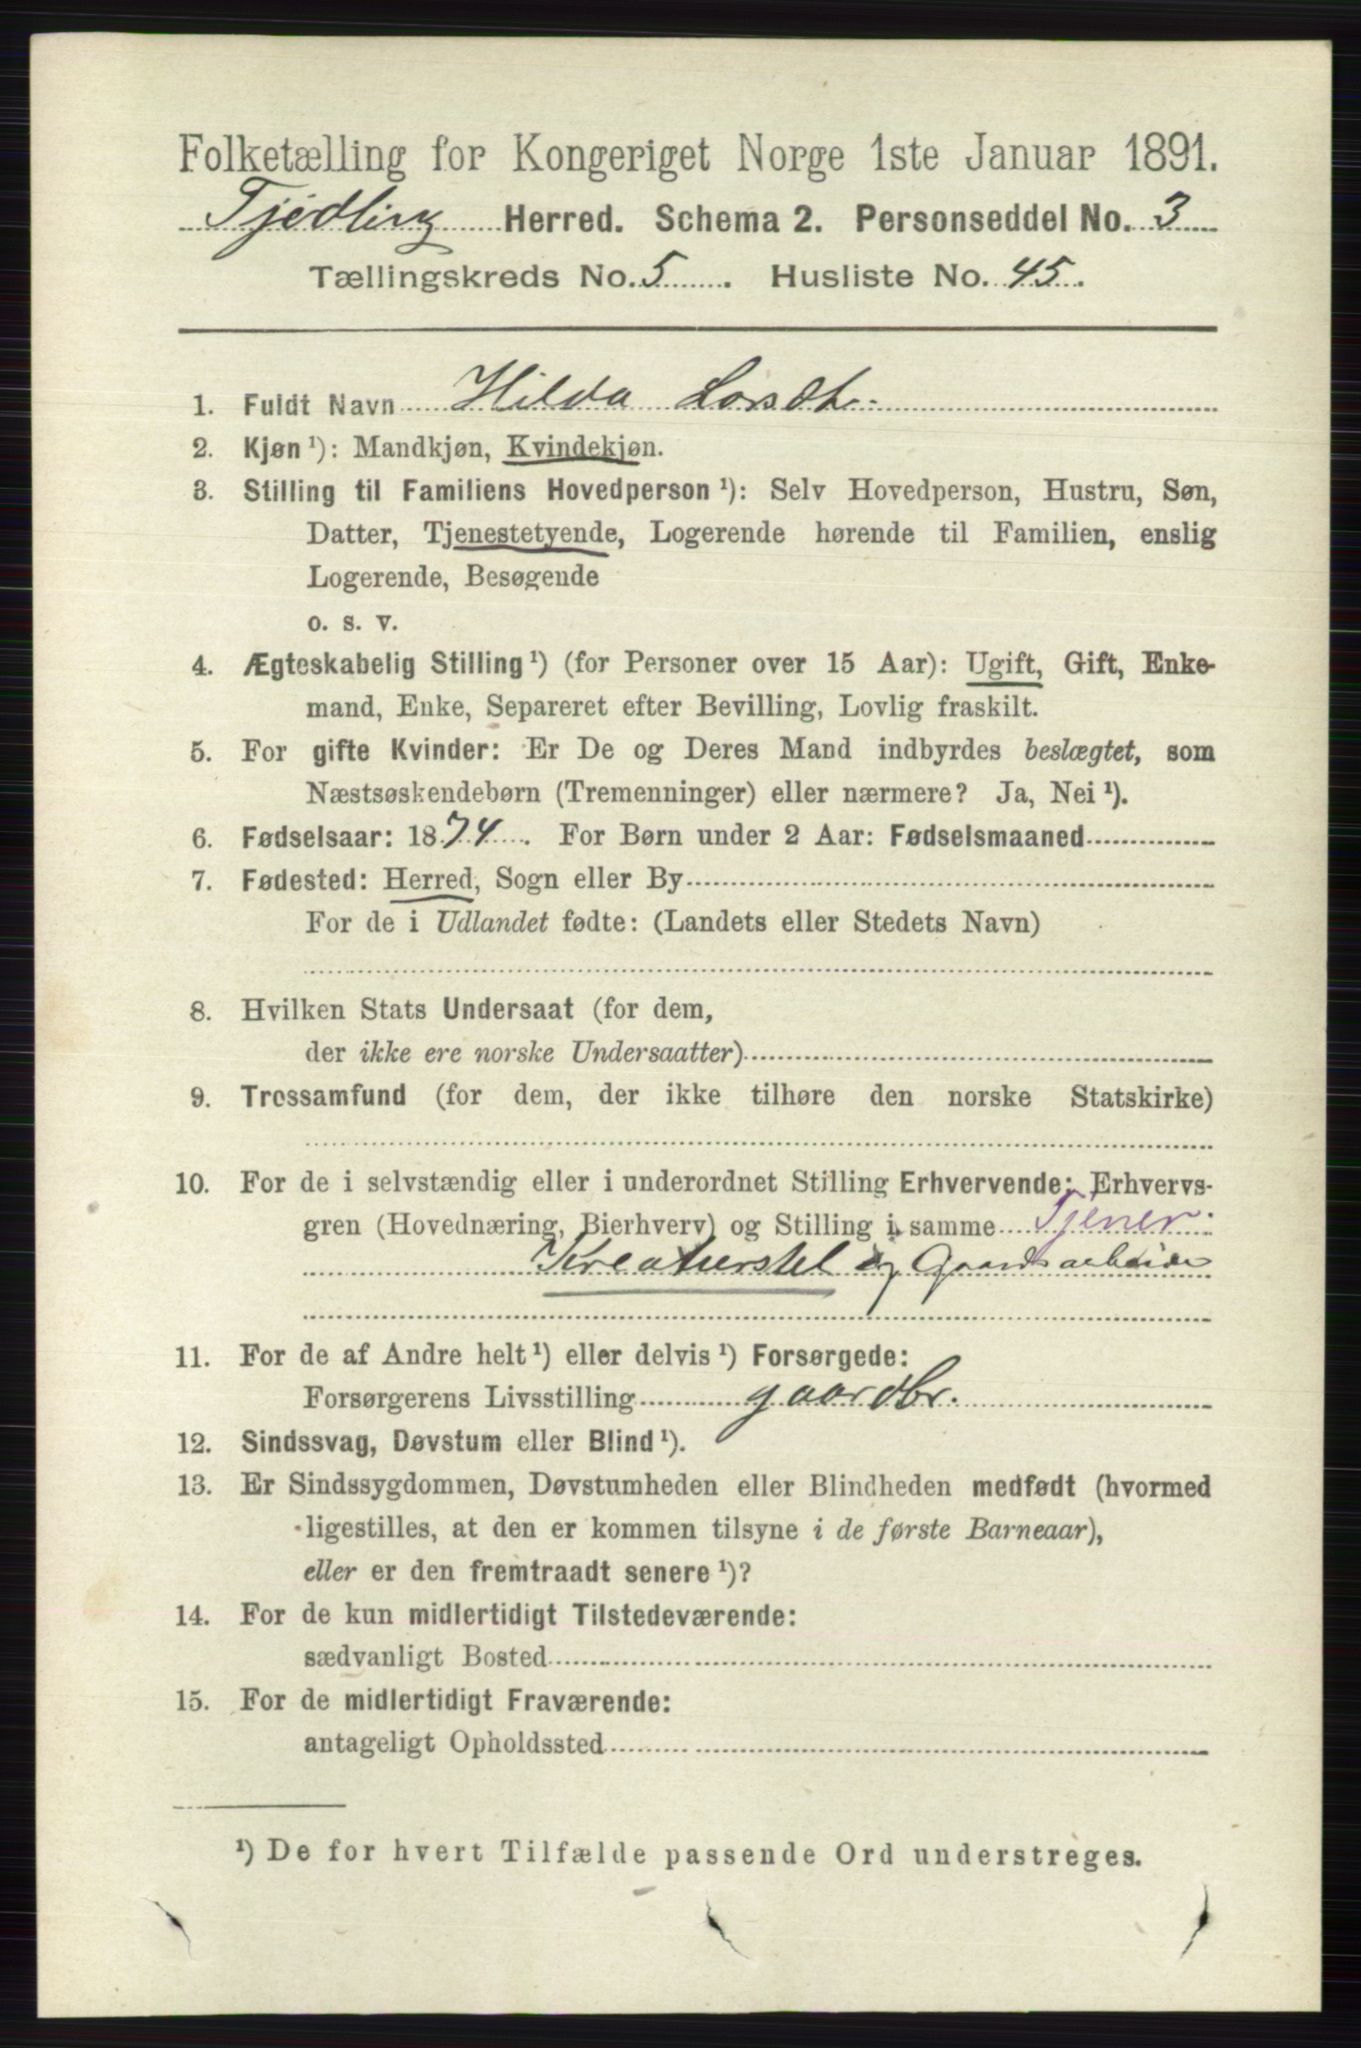 Folketælling for Kongeriget Norge 1ste Januar 1891.
Tjødling Herred. Schema 2. Personseddel No. 3
Tællingskreds No. 5. Husliste No. 45.
1. Fuldt Navn Hilda Larsdt.
2. Kjøn ¹): Mandkjøn, Kvindekjøn.
3. Stilling til Familiens Hovedperson ¹): Selv Hovedperson, Hustru, Søn,
Datter, Tjenestetyende, Logerende hørende til Familien, enslig
Logerende, Besøgende
o. s. v.
4. Ægteskabelig Stilling ¹) (for Personer over 15 Aar): Ugift, Gift, Enke-
mand, Enke, Separeret efter Bevilling, Lovlig fraskilt.
5. For gifte Kvinder: Er De og Deres Mand indbyrdes beslægtet, som
Næstsøskendebørn (Tremenninger) eller nærmere? Ja, Nei ¹).
6. Fødselsaar: 1874. For Børn under 2 Aar: Fødselsmaaned
7. Fødested: Herred, Sogn eller By
For de i Udlandet fødte: (Landets eller Stedets Navn)
8. Hvilken Stats Undersaat (for dem,
der ikke ere norske Undersaatter)
9. Trossamfund (for dem, der ikke tilhøre den norske Statskirke)
10. For de i selvstændig eller i underordnet Stilling Erhvervende: Erhvervs-
gren (Hovednæring, Bierhverv) og Stilling i samme Tjener
Kreaturstel og Gaardsarbeide
11. For de af Andre helt ¹) eller delvis ¹) Forsørgede:
Forsørgerens Livsstilling gaardbr.
12. Sindssvag, Døvstum eller Blind ¹).
13. Er Sindssygdommen, Døvstumheden eller Blindheden medfødt (hvormed
ligestilles, at den er kommen tilsyne i de første Barneaar),
eller er den fremtraadt senere ¹)?
14. For de kun midlertidigt Tilstedeværende:
sædvanligt Bosted
15. For de midlertidigt Fraværende:
antageligt Opholdssted
¹) De for hvert Tilfælde passende Ord understreges.